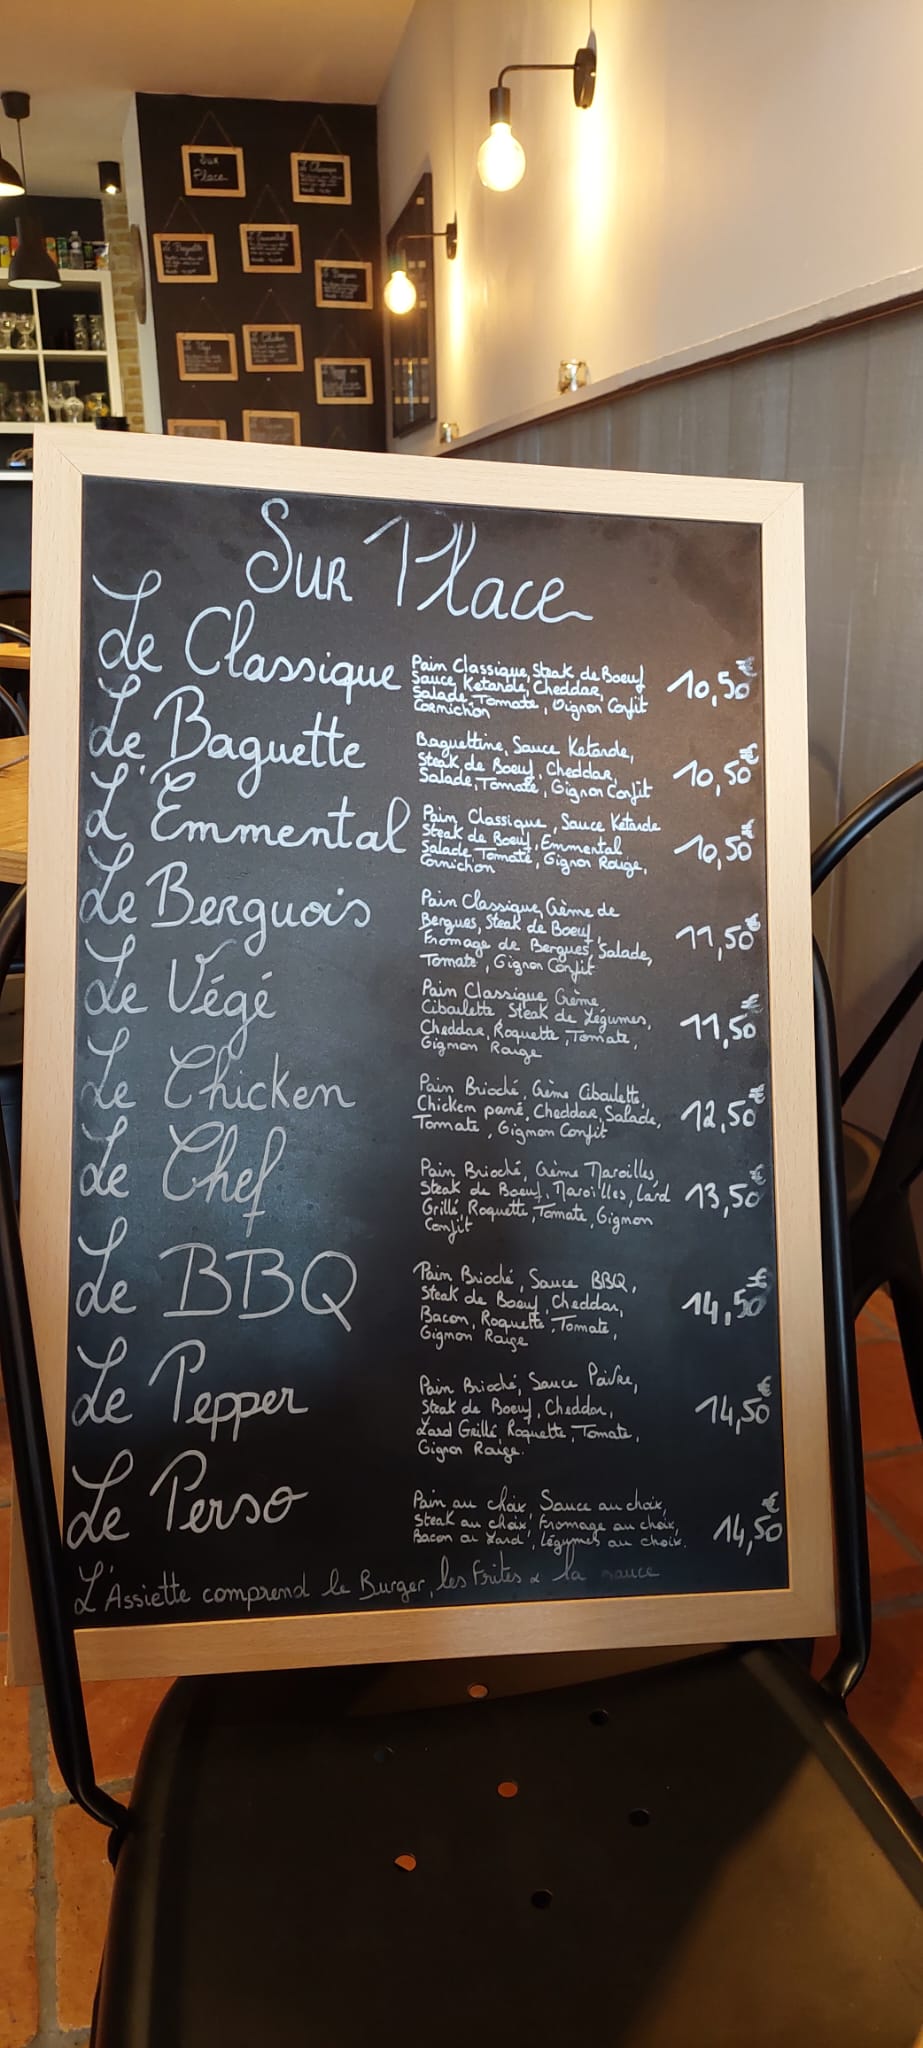 Sur Place
Le Classique
Le Baguette
Sur Place
Le Classique
Pain Classique, Steak de Boeuf
Sauce Ketarde, Cheddar,
Salade, Tomate, Oignon Confit
Cornichon
10,50€
Le Baguette
Baguettine, Sauce Ketarde,
Steak de Boeuf, Cheddar,
Salade, Tomate, Oignon Confit
10,50€
L'Emmental
Pain Classique, Sauce Ketarde
Steak de Boeuf, Emmental
Salade, Tomate, Oignon Rouge,
Cornichon
10,50€
Le Berguois
Pain Classique, Crème de
Bergues, Steak de Boeuf,
Fromage de Bergues, Salade,
Tomate, Oignon Confit
11,50€
Le Végé
Pain Classique, Crème
Ciboulette Steak de Légumes,
Cheddar, Roquette, Tomate,
Oignon Rouge
11,50€
Le Chicken
Pain Brioché, Crème Ciboulette,
Chicken pané, Cheddar, Salade,
Tomate, Oignon Confit
12,50€
Le Chef
Pain Brioché, Crème Maroilles,
Steak de Boeuf, Maroilles, Lard
Grillé, Roquette, Tomate, Oignon
Confit
13,50€
Le BBQ
Pain Brioché, Sauce BBQ,
Steak de Boeuf, Cheddar,
Bacon, Roquette, Tomate,
Oignon Rouge
14,50€
Le Pepper
Pain Brioché, Sauce Poivre,
Steak de Boeuf, Cheddar,
Lard Grillé, Roquette, Tomate,
Oignon Rouge.
14,50€
Le Perso
Pain au choix, Sauce au choix,
Steak au choix, Fromage au choix,
Bacon ou Lard, Légumes au choix.
14,50€
L'Assiette comprend le Burger, les Frites & la sauce